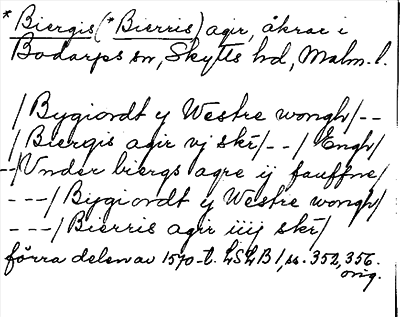 * Biergis (* Bierris) agir, åkrar i
Bodarps sn, Skytts hd, Malm. l.
/Bygiordt ij Westre wongh/--
/Biergis agir vj skr/--/Engh/
--/Vnder biergs agre ij fauffne/
---/Bijgiordt ij Westre wongh/
---/Bierris agir iiij skr/
förra delen av 1570-t. LSLB 1, ss. 352, 356.
orig.